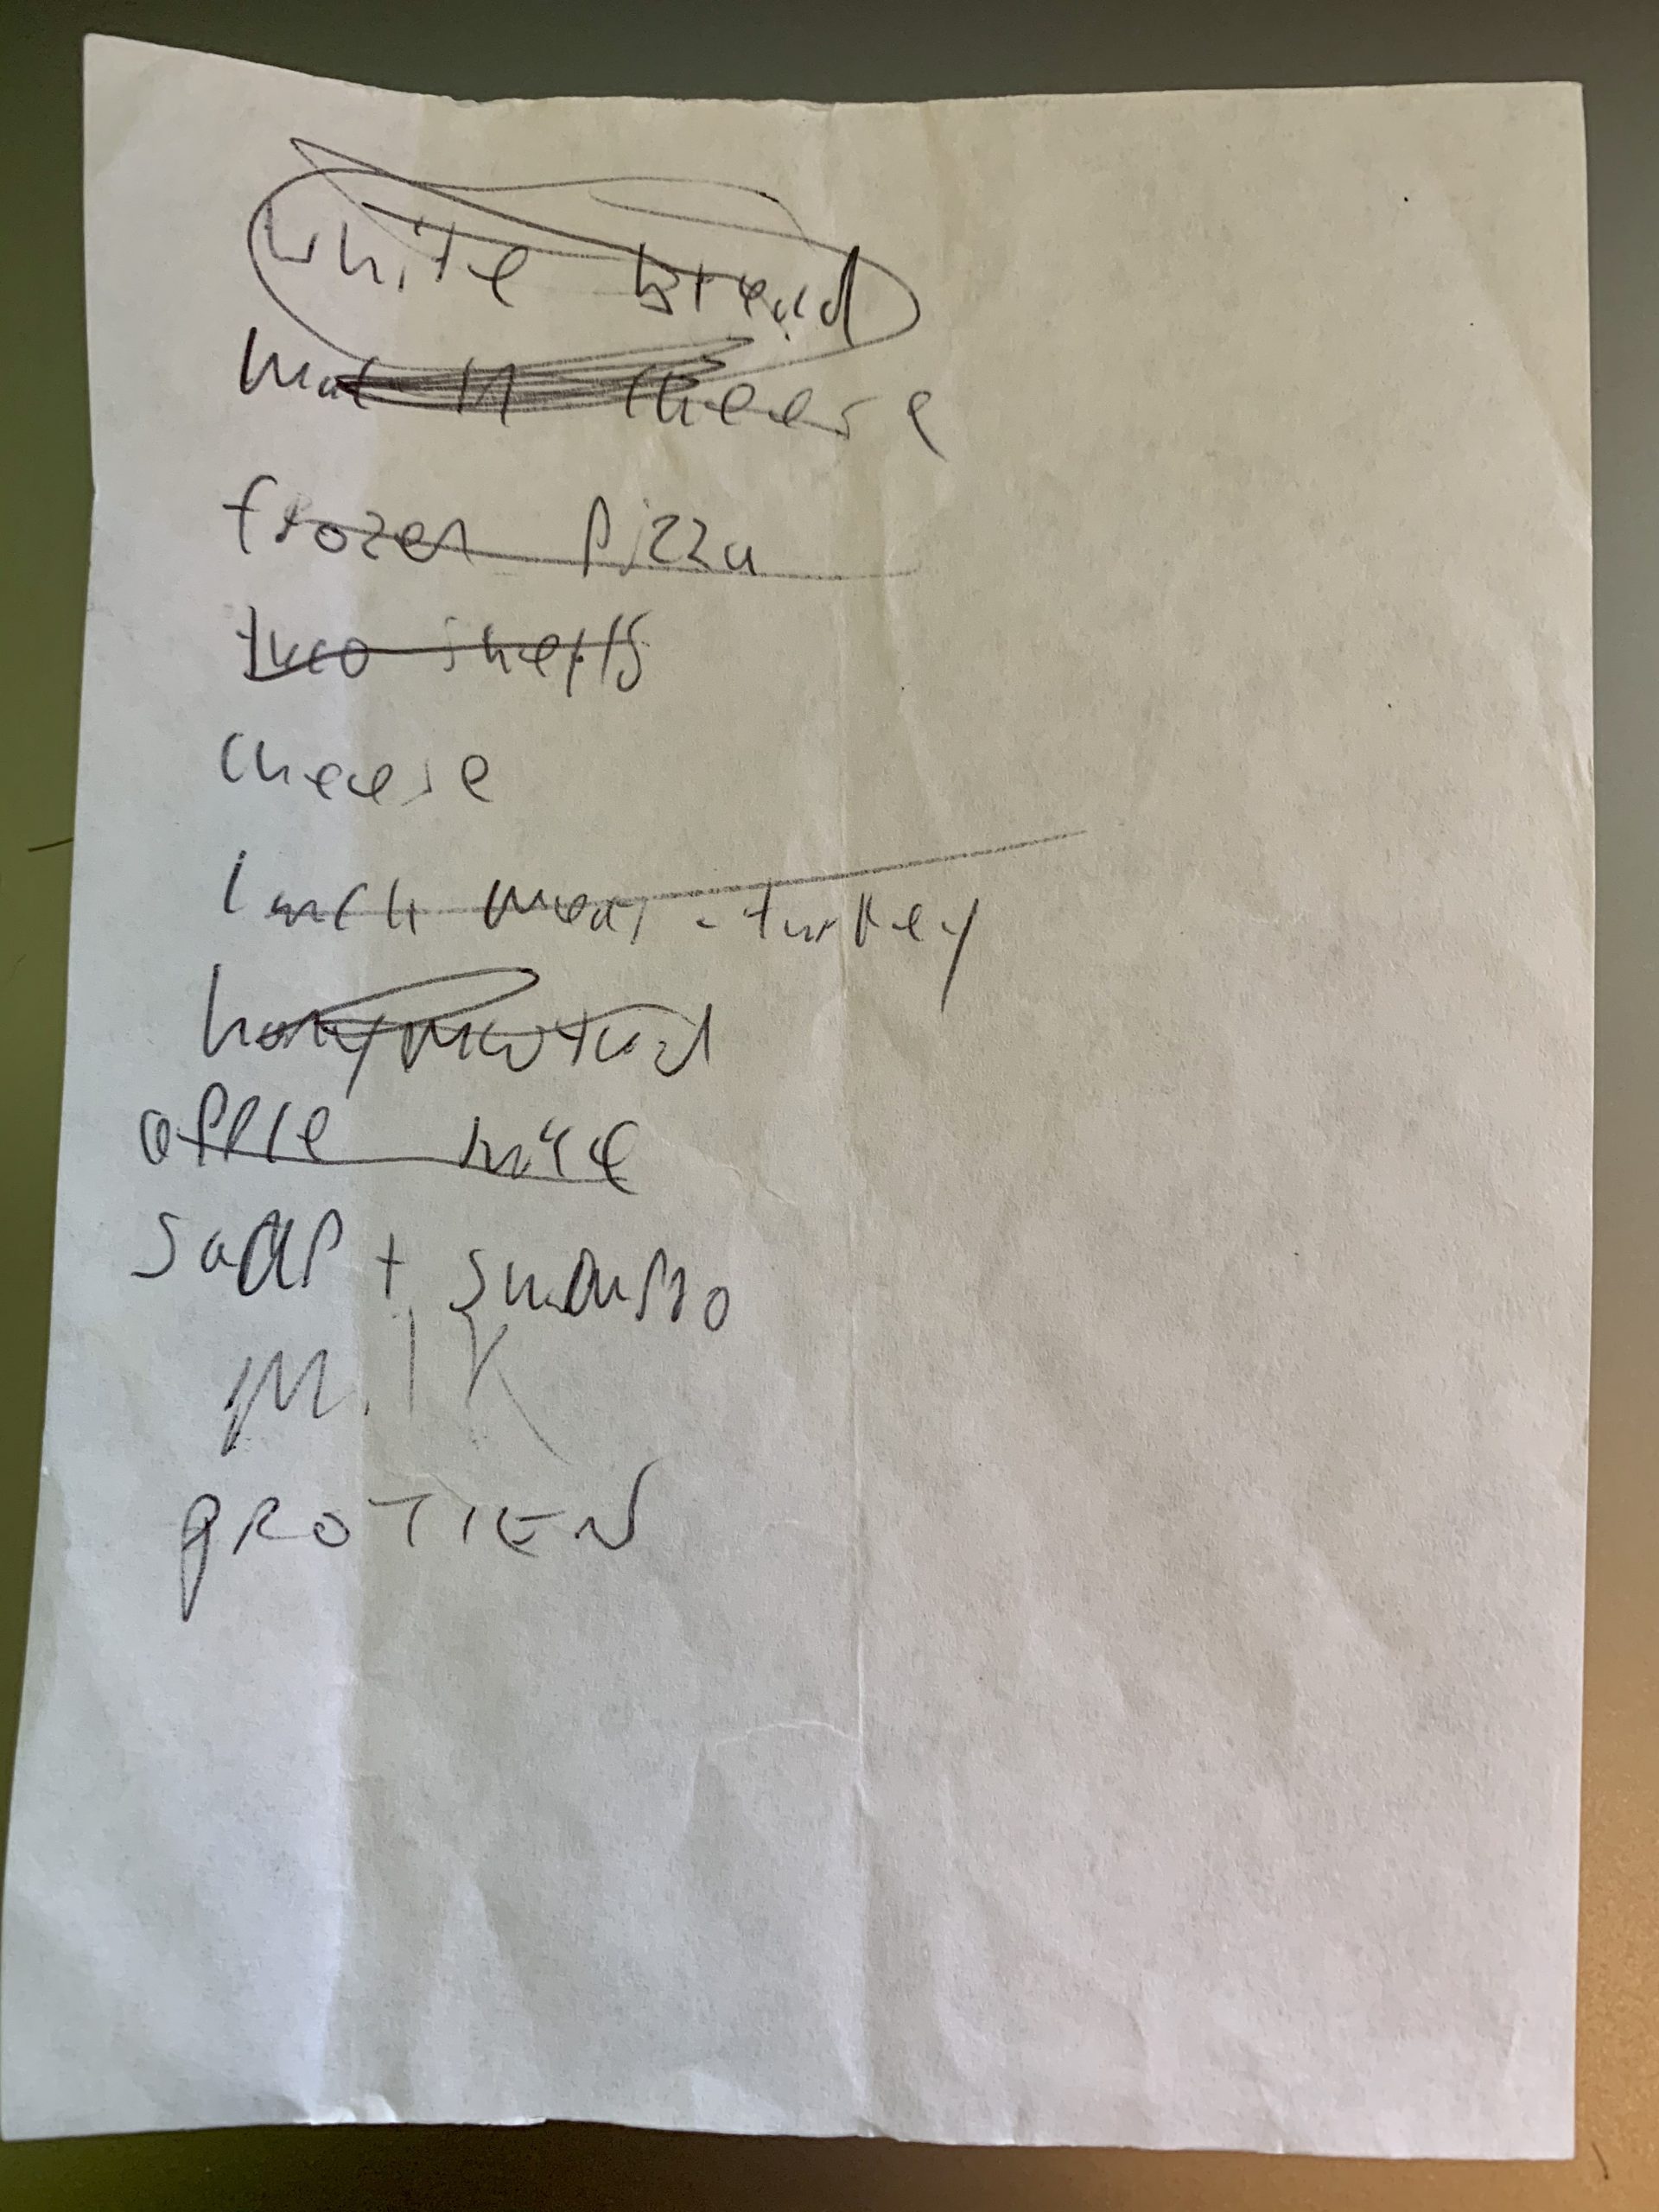 white bread
mac n cheese
frozen pizza
taco shells
cheese
lunch meat - turkey
honey mustard
apple juice
soap + shampoo
milk
PROTIEN